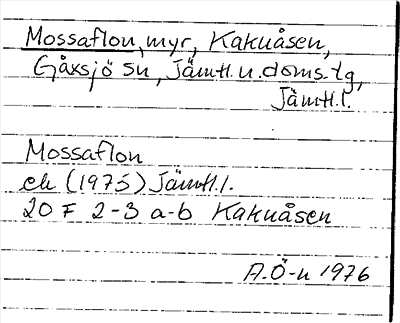 Mossaflon, myr, Kakuåsen,
Gåxsjö sn, Jämtl. n. doms. tg,
Jämtl. l.
Mossaflon
ek (1975) Jämtl. l.
20 F 2-3 a-b Kakuåsen
A.Ö-n 1976